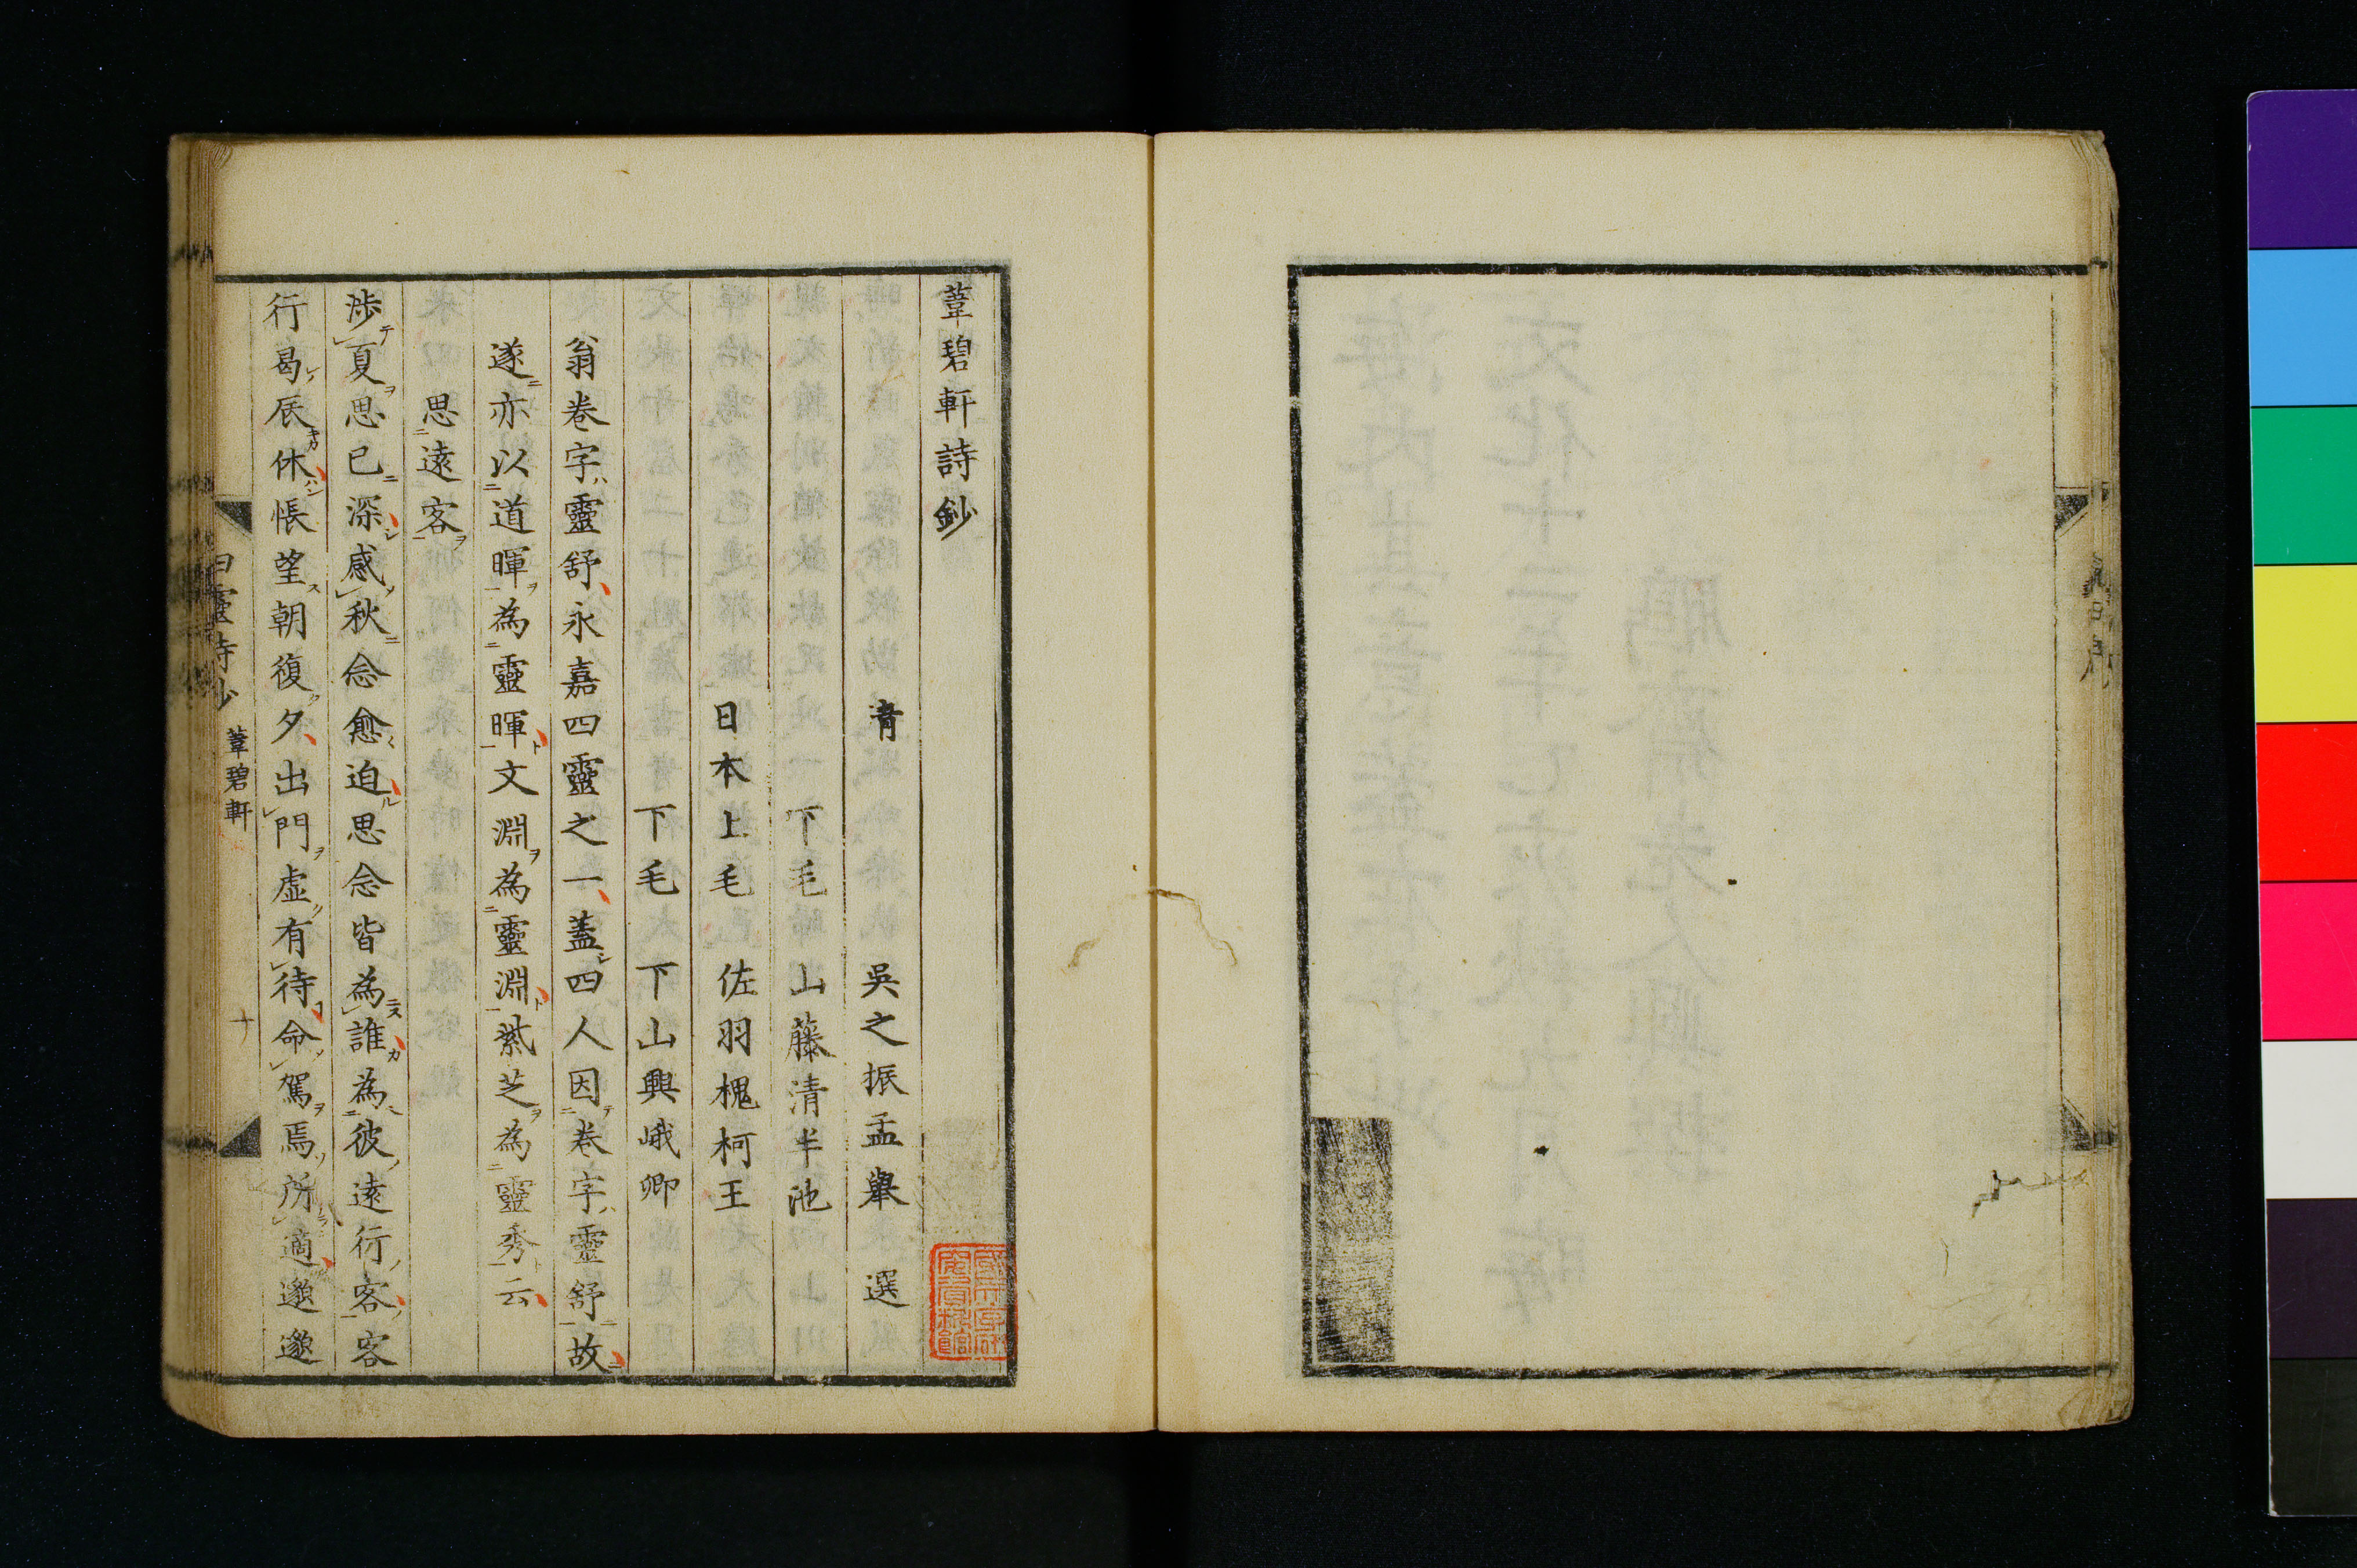 葦碧軒詩鈔
清 吳之振孟舉 選
下毛 山藤清半池
日本上毛 佐羽槐柯王
下毛 下山興峨卿
翁卷字靈舒永嘉四靈之一蓋四人因卷字靈舒故
遂亦以道暉為靈暉文淵為靈淵紫芝為靈秀云
思遠客
涉夏思已深感秋念愈迫思念皆為誰為彼遠行客客
行曷辰休悵望朝復夕出門虛有待命駕焉所適邈邈
四靈詩鈔 葦碧軒 十